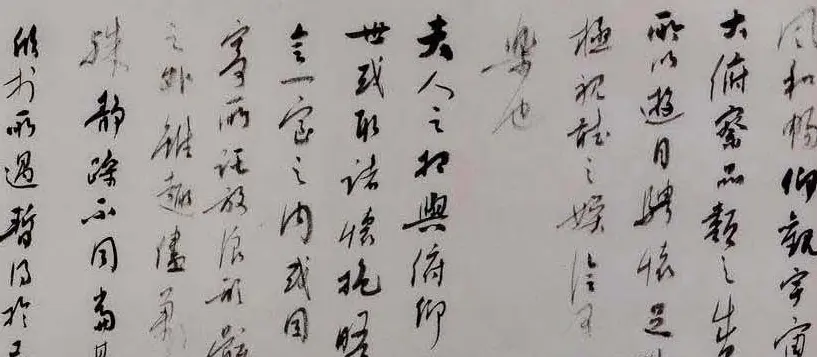 風和暢仰觀宇宙
大俯察品類之盛
所以遊目騁懷足
極視聽之娛信可
樂也
夫人之相與俯仰
世或取諸懷抱晤
言一室之內或因
寄所託放浪形骸
之外雖趣舍萬
殊靜躁不同當其
欣於所遇暫得於己